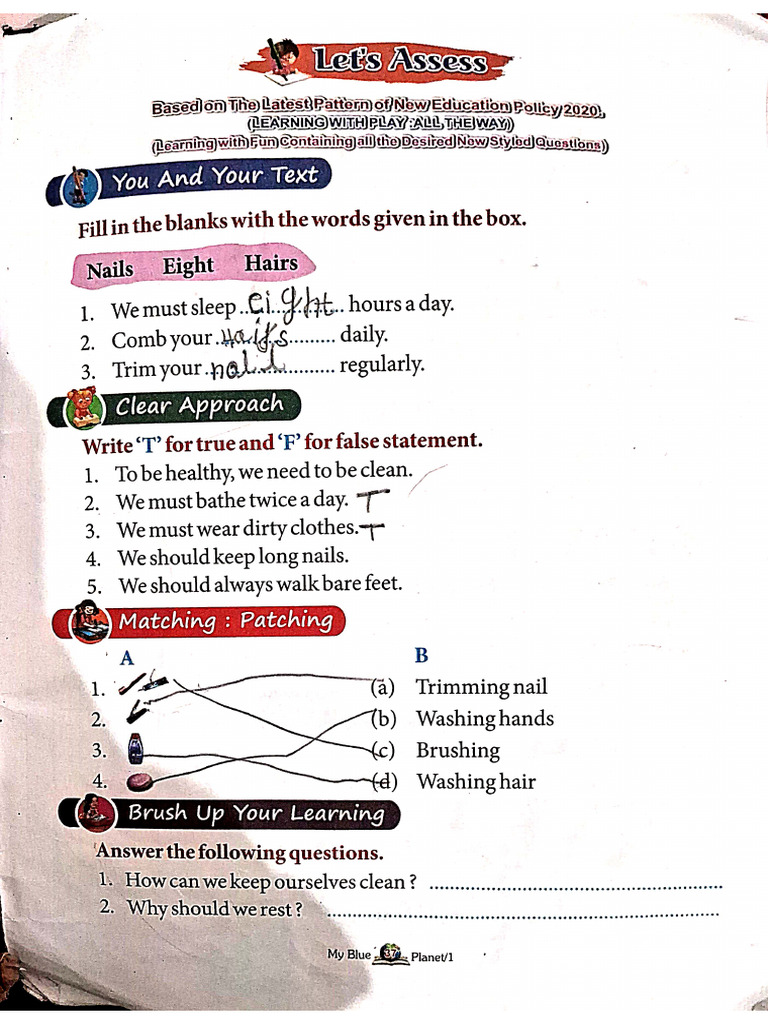 Let's Assess
Based on The Latest Pattern of New Education Policy 2020,
(LEARNING WITH PLAY :ALL THE WAY)
(Learning with Fun Containing all the Desired New Styled Questions)
You And Your Text
Fill in the blanks with the words given in the box.
Nails Eight Hairs
1. We must sleep eight hours a day.
2. Comb your Hairs daily.
3. Trim your nail regularly.
Clear Approach
Write 'T' for true and 'F' for false statement.
1. To be healthy, we need to be clean.
2. We must bathe twice a day. T
3. We must wear dirty clothes. T
4. We should keep long nails.
5. We should always walk bare feet.
Matching : Patching
A B
1. (a) Trimming nail
2. (b) Washing hands
3. (c) Brushing
4. (d) Washing hair
Brush Up Your Learning
Answer the following questions.
1. How can we keep ourselves clean ? ........................................
2. Why should we rest ? ........................................
My Blue 37 Planet/1